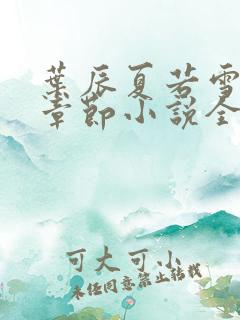 葉辰夏若雪
章節小說全
可大可小
未經同意禁止轉載